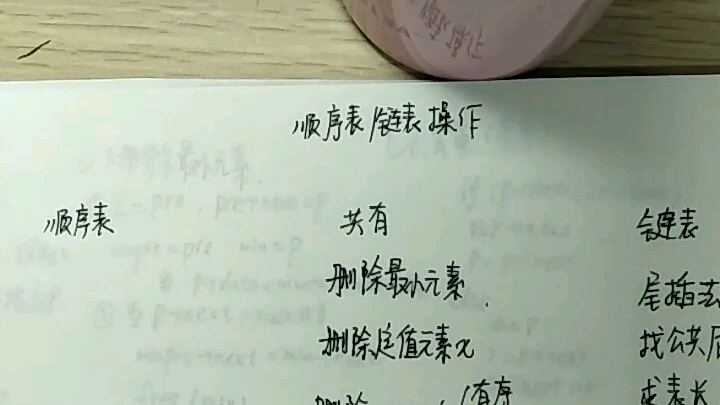 顺序表/链表操作
顺序表 共有 链表
删除最小元素 尾插法
删除定值元素x 找公共后
删除 有序 求表长